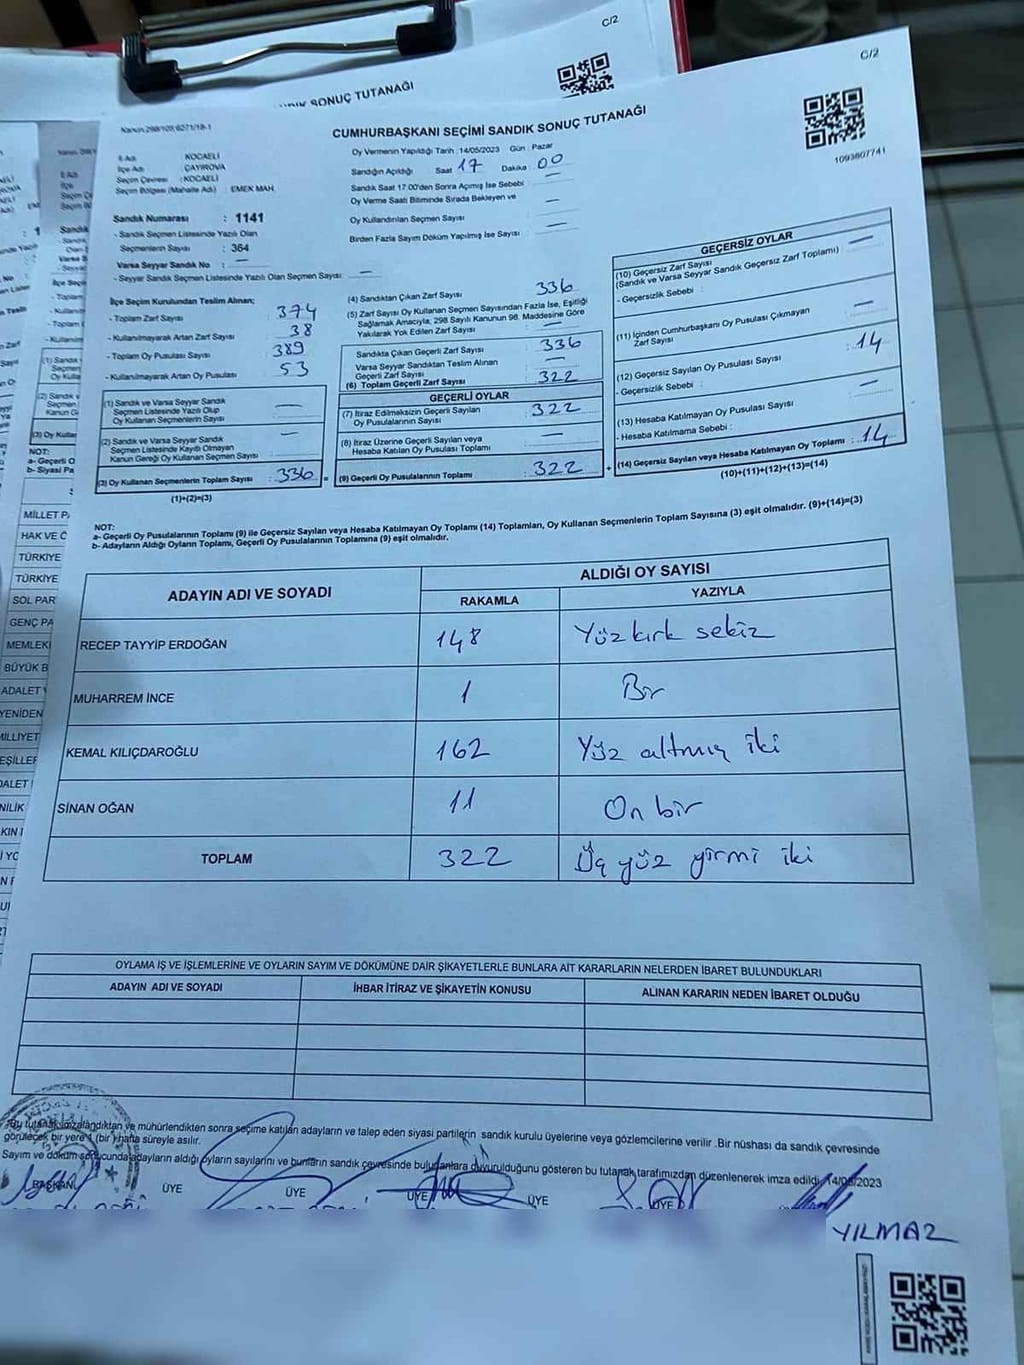 C/2
SONUÇ TUTANAĞI
C/2
CUMHURBAŞKANI SEÇİMİ SANDIK SONUÇ TUTANAĞI
1093807741
İl Adı : KOCAELİ
İlçe Adı : ÇAYIROVA
Seçim Çevresi : KOCAELİ
Seçim Bölgesi (Mahalle Adı) : EMEK MAH
Oy Vermenin Yapıldığı Tarih : 14/05/2023 Gün : Pazar
Sandığın Açıldığı Saat 17 Dakika : 00
Sandık Saat 17.00'den Sonra Açılmış İse Sebebi —
Oy Verme Saati Bitiminde Sırada Bekleyen ve
Oy Kullandırılan Seçmen Sayısı —
Birden Fazla Sayım Döküm Yapılmış İse Sayısı —
Sandık Numarası : 1141
- Sandık Seçmen Listesinde Yazılı Olan
Seçmenlerin Sayısı : 364
Varsa Seyyar Sandık No : —
- Seyyar Sandık Seçmen Listesinde Yazılı Olan Seçmen Sayısı: —
İlçe Seçim Kurulundan Teslim Alınan;
- Toplam Zarf Sayısı : 374
- Kullanılmayarak Artan Zarf Sayısı : 38
- Toplam Oy Pusulası Sayısı : 389
- Kullanılmayarak Artan Oy Pusulası : 53
(1) Sandık ve Varsa Seyyar Sandık
Seçmen Listesinde Yazılı Olup
Oy Kullanan Seçmenlerin Sayısı : —
(2) Sandık ve Varsa Seyyar Sandık
Seçmen Listesinde Kayıtlı Olmayan
Kanun Gereği Oy Kullanan Seçmen Sayısı : —
(3) Oy Kullanan Seçmenlerin Toplam Sayısı : 336
(1)+(2)=(3)
(4) Sandıktan Çıkan Zarf Sayısı : 336
(5) Zarf Sayısı Oy Kullanan Seçmen Sayısından Fazla İse, Eşitliği
Sağlamak Amacıyla, 298 Sayılı Kanunun 98. Maddesine Göre
Yakılarak Yok Edilen Zarf Sayısı : —
Sandıkta Çıkan Geçerli Zarf Sayısı : 336
Varsa Seyyar Sandıktan Teslim Alınan
Geçerli Zarf Sayısı : —
(6) Toplam Geçerli Zarf Sayısı : 322
GEÇERLİ OYLAR
(7) İtiraz Edilmeksizin Geçerli Sayılan
Oy Pusulalarının Sayısı : 322
(8) İtiraz Üzerine Geçerli Sayılan veya
Hesaba Katılan Oy Pusulası Toplamı : —
(9) Geçerli Oy Pusulalarının Toplamı : 322
GEÇERSİZ OYLAR
(10) Geçersiz Zarf Sayısı
(Sandık ve Varsa Seyyar Sandık Geçersiz Zarf Toplamı) —
- Geçersizlik Sebebi :
(11) İçinden Cumhurbaşkanı Oy Pusulası Çıkmayan
Zarf Sayısı —
(12) Geçersiz Sayılan Oy Pusulası Sayısı : 14
- Geçersizlik Sebebi :
(13) Hesaba Katılmayan Oy Pusulası Sayısı —
- Hesaba Katılmama Sebebi :
(14) Geçersiz Sayılan veya Hesaba Katılmayan Oy Toplamı : 14
(10)+(11)+(12)+(13)=(14)
NOT:
a- Geçerli Oy Pusulalarının Toplamı (9) ile Geçersiz Sayılan veya Hesaba Katılmayan Oy Toplamı (14) Toplamları, Oy Kullanan Seçmenlerin Toplam Sayısına (3) eşit olmalıdır. (9)+(14)=(3)
b- Adayların Aldığı Oyların Toplamı, Geçerli Oy Pusulalarının Toplamına (9) eşit olmalıdır.
ADAYIN ADI VE SOYADI
ALDIĞI OY SAYISI
RAKAMLA YAZIYLA
RECEP TAYYİP ERDOĞAN 148 Yüzkırk sekiz
MUHARREM İNCE 1 Bir
KEMAL KILIÇDAROĞLU 162 Yüz altmış iki
SİNAN OĞAN 11 On bir
TOPLAM 322 Üç yüz yirmi iki
OYLAMA İŞ VE İŞLEMLERİNE VE OYLARIN SAYIM VE DÖKÜMÜNE DAİR ŞİKAYETLERLE BUNLARA AİT KARARLARIN NELERDEN İBARET BULUNDUKLARI
ADAYIN ADI VE SOYADI İHBAR İTİRAZ VE ŞİKAYETİN KONUSU ALINAN KARARIN NEDEN İBARET OLDUĞU
Bu tutanak imzalandıktan ve mühürlendikten sonra seçime katılan adayların ve talep eden siyasi partilerin sandık kurulu üyelerine veya gözlemcilerine verilir .Bir nüshası da sandık çevresinde
görülecek bir yere 1 (bir ) hafta süreyle asılır.
Sayım ve döküm sonucunda adayların aldığı oyların sayılarını ve bunların sandık çevresinde bulunanlara duyurulduğunu gösteren bu tutanak tarafımızdan düzenlenerek imza edildi. 14/05/2023
BAŞKAN ÜYE ÜYE ÜYE ÜYE ÜYE
YILMAZ